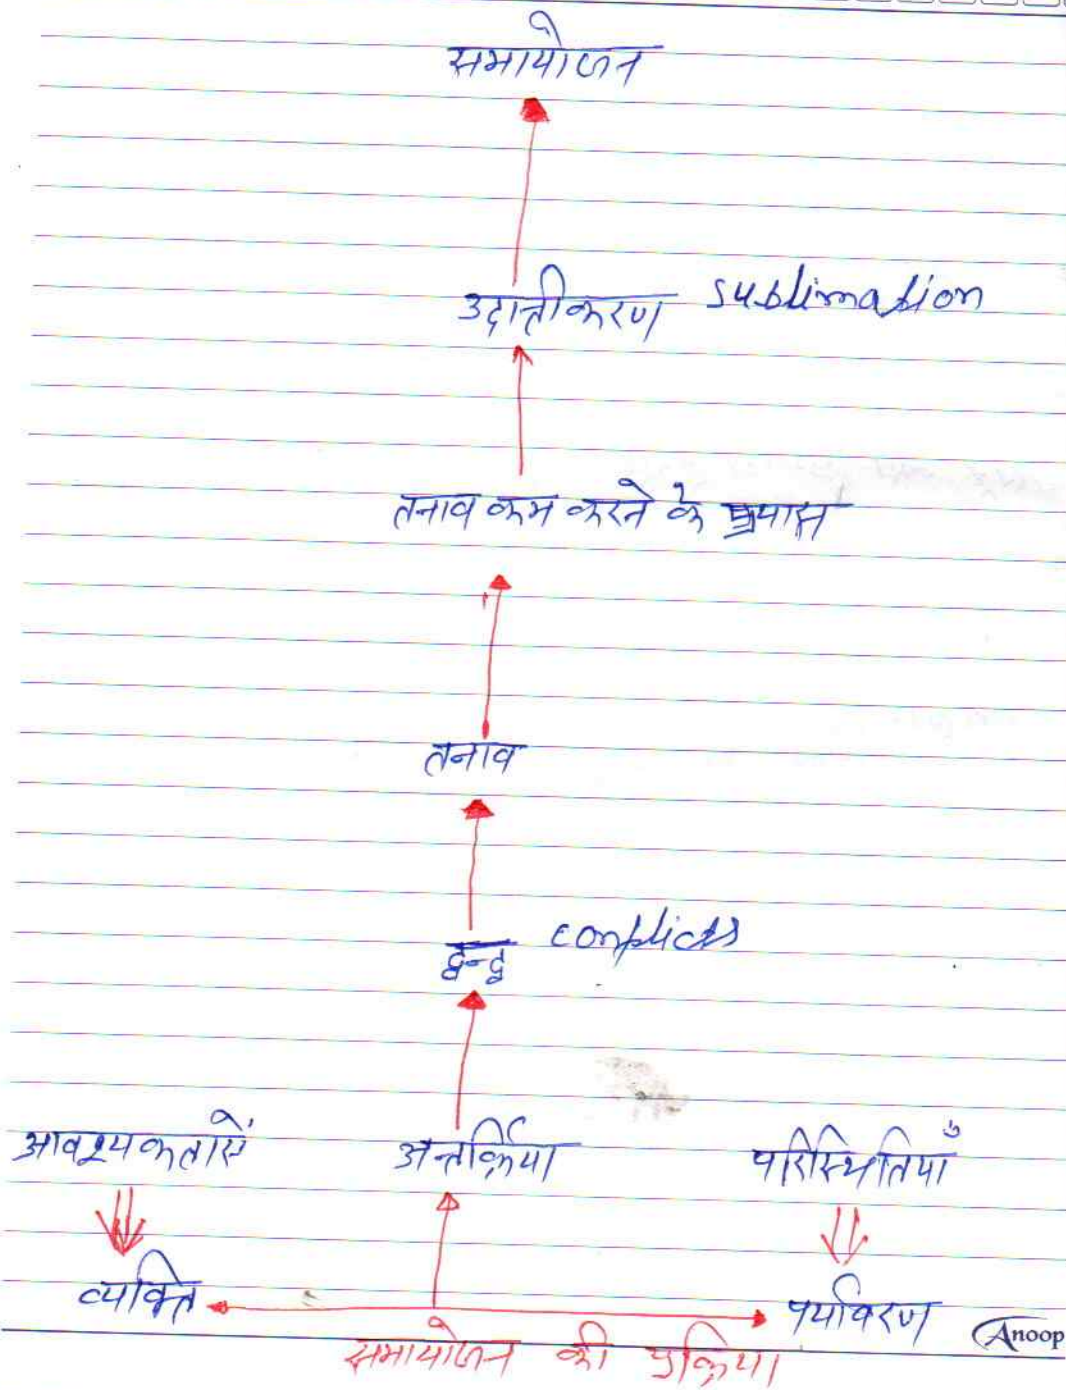 समायोजन
उदात्तीकरण sublimation
तनाव कम करने के प्रयास
तनाव
द्वन्द्व conflicts
आवश्यकताऐं अन्तर्क्रिया परिस्थितियाँ
व्यक्ति पर्यावरण
समायोजन की प्रक्रिया
Anoop